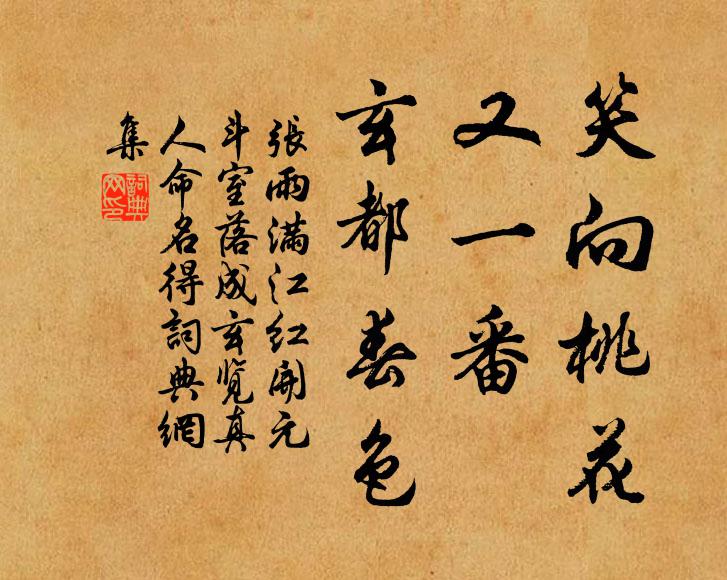 笑向桃花
又一番
玄都春色
張雨滿江紅開元
斗室落成玄覽真
人命名得詞典網
集
詞典網印